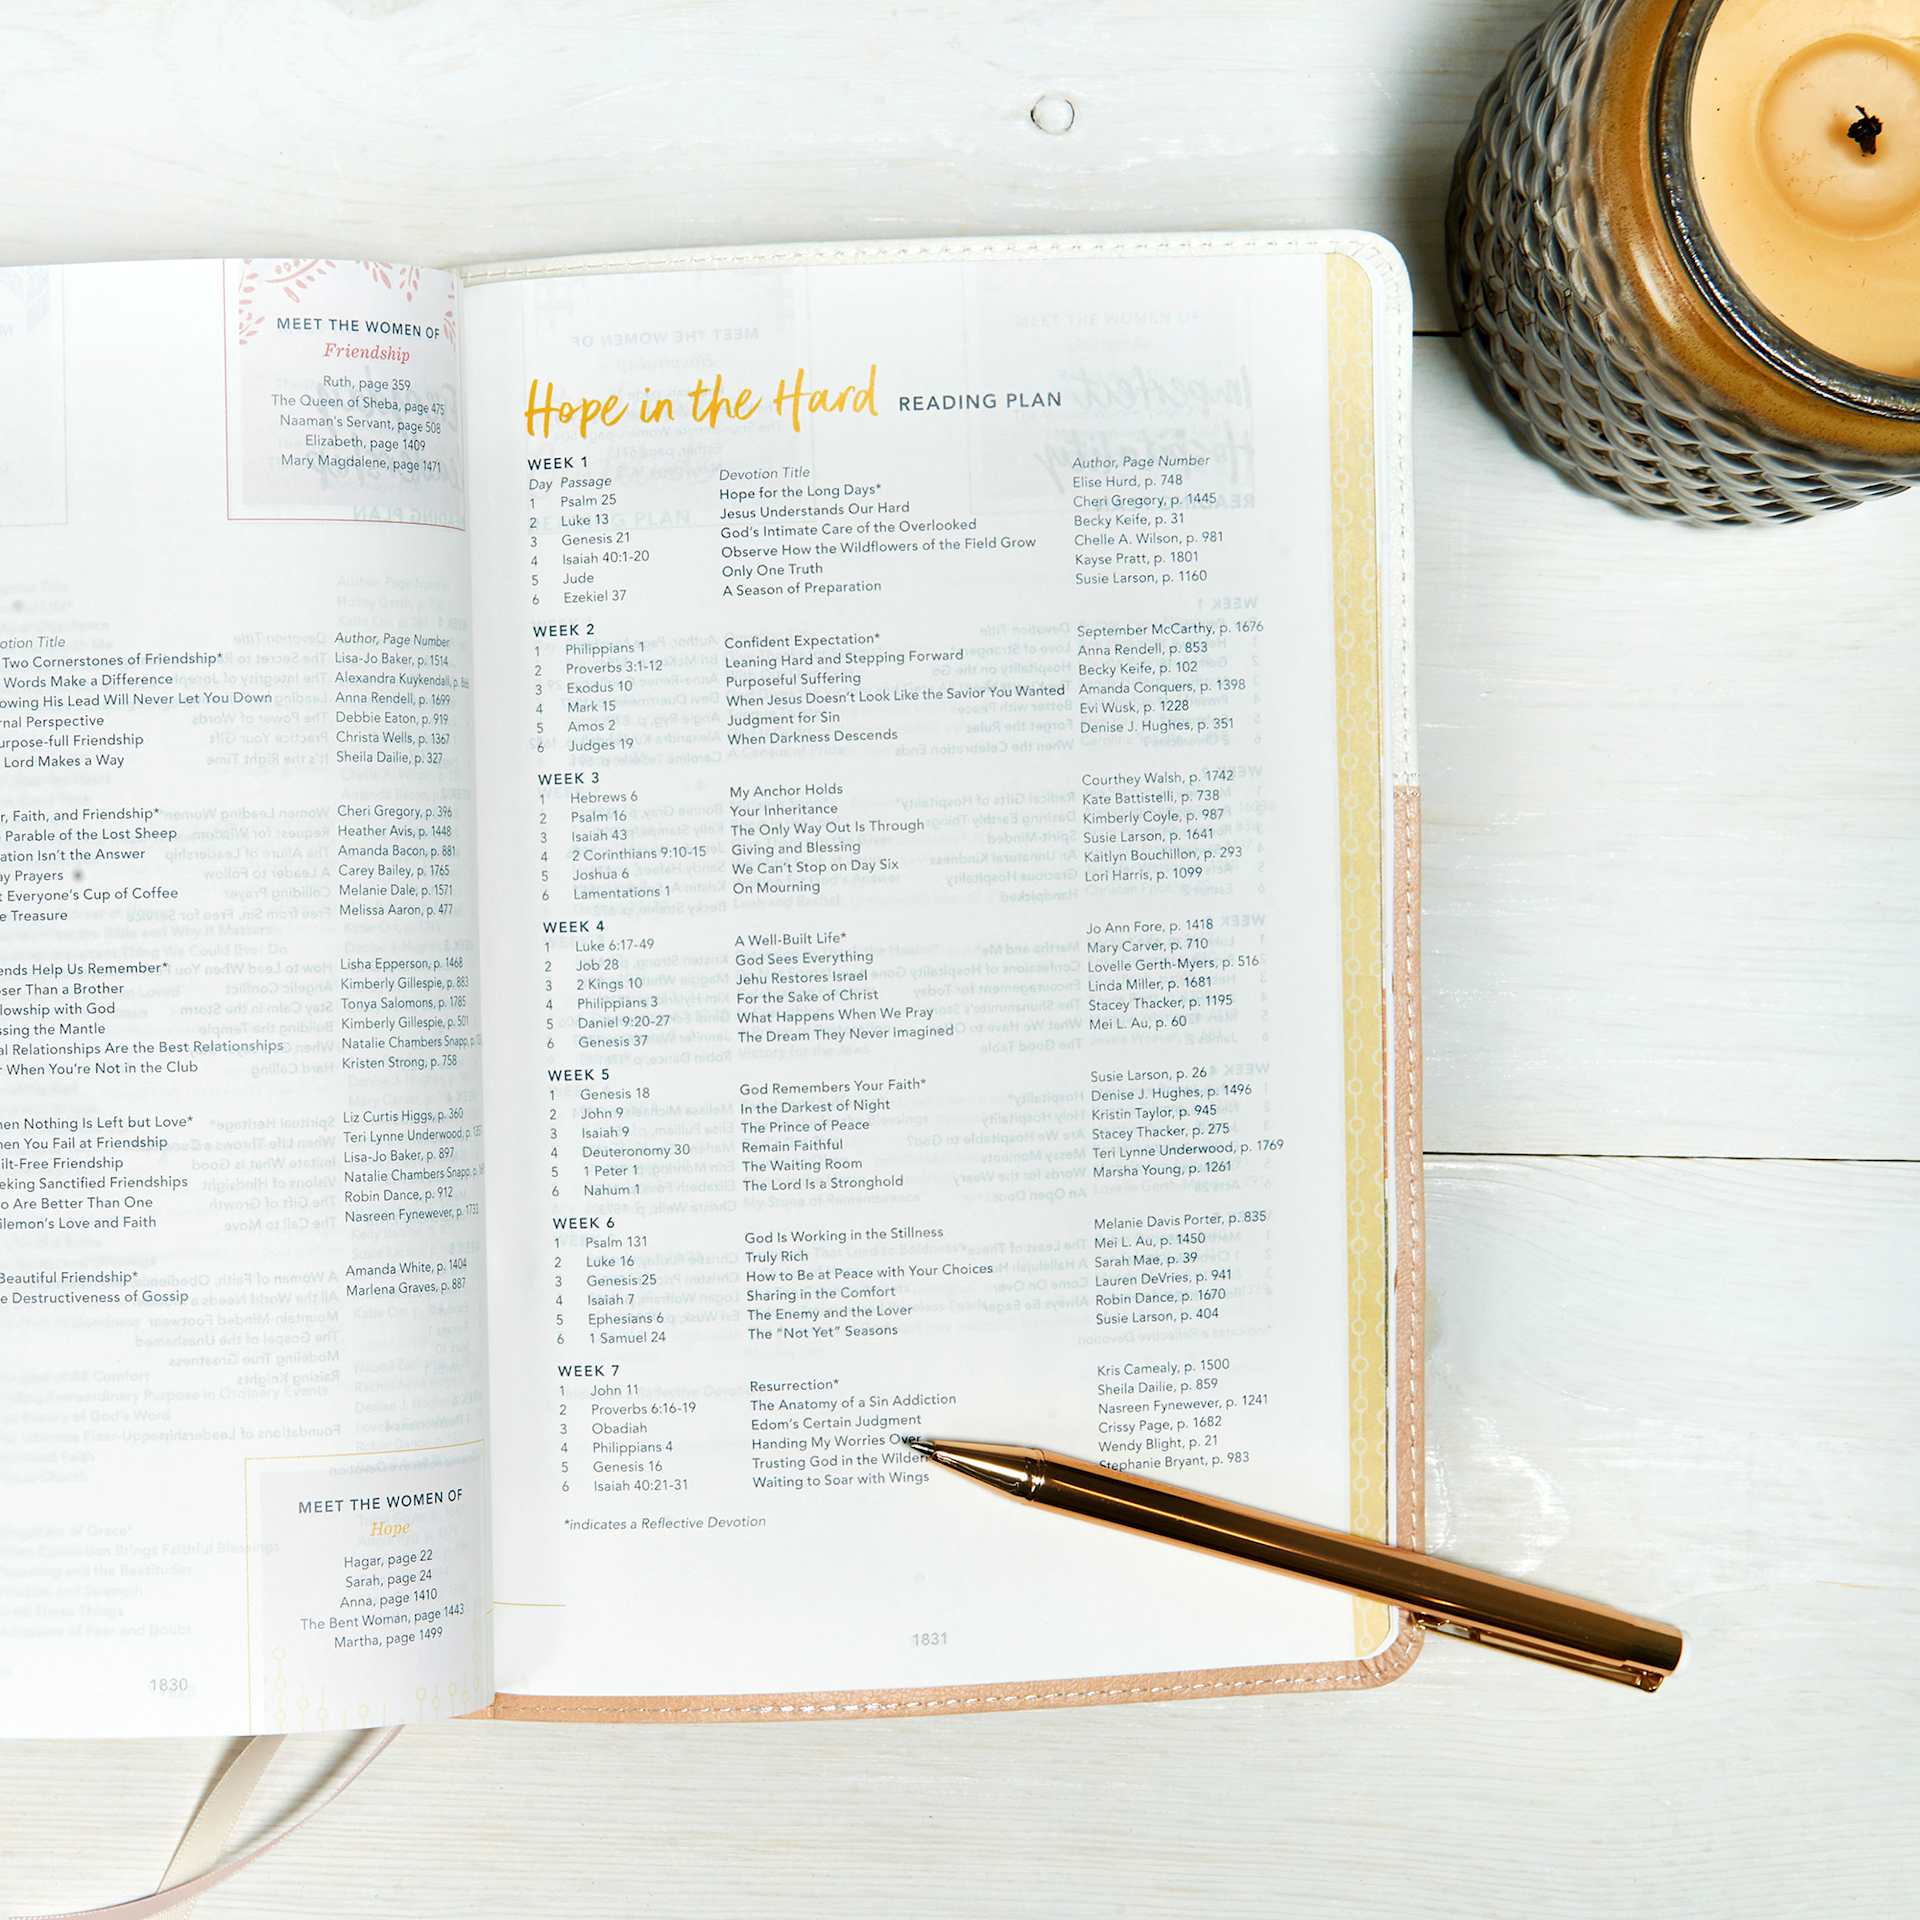 MEET THE WOMEN OF
Friendship
Ruth, page 359
The Queen of Sheba, page 475
Naaman's Servant, page 508
Elizabeth, page 1409
Mary Magdalene, page 1471
Title Author, Page Number
Two Cornerstones of Friendship* Lisa-Jo Baker, p. 1514
Words Make a Difference Alexandra Kuykendall,
His Lead Will Never Let You Down Anna Rendell, p. 1699
Perspective Debbie Eaton, p. 919
Friendship Christa Wells, p. 1367
Lord Makes a Way Sheila Dailie, p. 327
Faith, and Friendship* Cheri Gregory, p. 396
Parable of the Lost Sheep Heather Avis, p. 1448
Isn't the Answer Amanda Bacon, p. 881
Prayers Carey Bailey, p. 1765
Everyone's Cup of Coffee Melanie Dale, p. 1571
Treasure Melissa Aaron, p. 477
Help Us Remember* Lisha Epperson, p. 1468
Than a Brother Kimberly Gillespie, p. 883
with God Tonya Salomons, p. 1785
the Mantle Kimberly Gillespie, p. 501
Relationships Are the Best Relationships Natalie Chambers Snapp,
When You're Not in the Club Kristen Strong, p. 758
Nothing Is Left but Love* Liz Curtis Higgs, p. 360
You Fail at Friendship Teri Lynne Underwood,
Friendship Lisa-Jo Baker, p. 897
Sanctified Friendships Natalie Chambers Snapp,
Are Better Than One Robin Dance, p. 912
Love and Faith Nasreen Fynewever, p. 1733
Beautiful Friendship* Amanda White, p. 1404
Destructiveness of Gossip Marlena Graves, p. 887
MEET THE WOMEN OF
Hope
Hagar, page 22
Sarah, page 24
Anna, page 1410
The Bent Woman, page 1443
Martha, page 1499
1830
Hope in the Hard READING PLAN
WEEK 1
Day Passage Devotion Title Author, Page Number
1 Psalm 25 Hope for the Long Days* Elise Hurd, p. 748
2 Luke 13 Jesus Understands Our Hard Cheri Gregory, p. 1445
3 Genesis 21 God's Intimate Care of the Overlooked Becky Keife, p. 31
4 Isaiah 40:1-20 Observe How the Wildflowers of the Field Grow Chelle A. Wilson, p. 981
5 Jude Only One Truth Kayse Pratt, p. 1801
6 Ezekiel 37 A Season of Preparation Susie Larson, p. 1160
WEEK 2
1 Philippians 1 Confident Expectation* September McCarthy, p. 1676
2 Proverbs 3:1-12 Leaning Hard and Stepping Forward Anna Rendell, p. 853
3 Exodus 10 Purposeful Suffering Becky Keife, p. 102
4 Mark 15 When Jesus Doesn't Look Like the Savior You Wanted Amanda Conquers, p. 1398
5 Amos 2 Judgment for Sin Evi Wusk, p. 1228
6 Judges 19 When Darkness Descends Denise J. Hughes, p. 351
WEEK 3
1 Hebrews 6 My Anchor Holds Courthey Walsh, p. 1742
2 Psalm 16 Your Inheritance Kate Battistelli, p. 738
3 Isaiah 43 The Only Way Out Is Through Kimberly Coyle, p. 987
4 2 Corinthians 9:10-15 Giving and Blessing Susie Larson, p. 1641
5 Joshua 6 We Can't Stop on Day Six Kaitlyn Bouchillon, p. 293
6 Lamentations 1 On Mourning Lori Harris, p. 1099
WEEK 4
1 Luke 6:17-49 A Well-Built Life* Jo Ann Fore, p. 1418
2 Job 28 God Sees Everything Mary Carver, p. 710
3 2 Kings 10 Jehu Restores Israel Lovelle Gerth-Myers, p. 516
4 Philippians 3 For the Sake of Christ Linda Miller, p. 1681
5 Daniel 9:20-27 What Happens When We Pray Stacey Thacker, p. 1195
6 Genesis 37 The Dream They Never Imagined Mei L. Au, p. 60
WEEK 5
1 Genesis 18 God Remembers Your Faith* Susie Larson, p. 26
2 John 9 In the Darkest of Night Denise J. Hughes, p. 1496
3 Isaiah 9 The Prince of Peace Kristin Taylor, p. 945
4 Deuteronomy 30 Remain Faithful Stacey Thacker, p. 275
5 1 Peter 1 The Waiting Room Teri Lynne Underwood, p. 1769
6 Nahum 1 The Lord Is a Stronghold Marsha Young, p. 1261
WEEK 6
1 Psalm 131 God Is Working in the Stillness Melanie Davis Porter, p. 835
2 Luke 16 Truly Rich Mei L. Au, p. 1450
3 Genesis 25 How to Be at Peace with Your Choices Sarah Mae, p. 39
4 Isaiah 7 Sharing in the Comfort Lauren DeVries, p. 941
5 Ephesians 6 The Enemy and the Lover Robin Dance, p. 1670
6 1 Samuel 24 The "Not Yet" Seasons Susie Larson, p. 404
WEEK 7
1 John 11 Resurrection* Kris Camealy, p. 1500
2 Proverbs 6:16-19 The Anatomy of a Sin Addiction Sheila Dailie, p. 859
3 Obadiah Edom's Certain Judgment Nasreen Fynewever, p. 1241
4 Philippians 4 Handing My Worries Over Crissy Page, p. 1682
5 Genesis 16 Trusting God in the Wilder Wendy Blight, p. 21
6 Isaiah 40:21-31 Waiting to Soar with Wings Stephanie Bryant, p. 983
*indicates a Reflective Devotion
1831